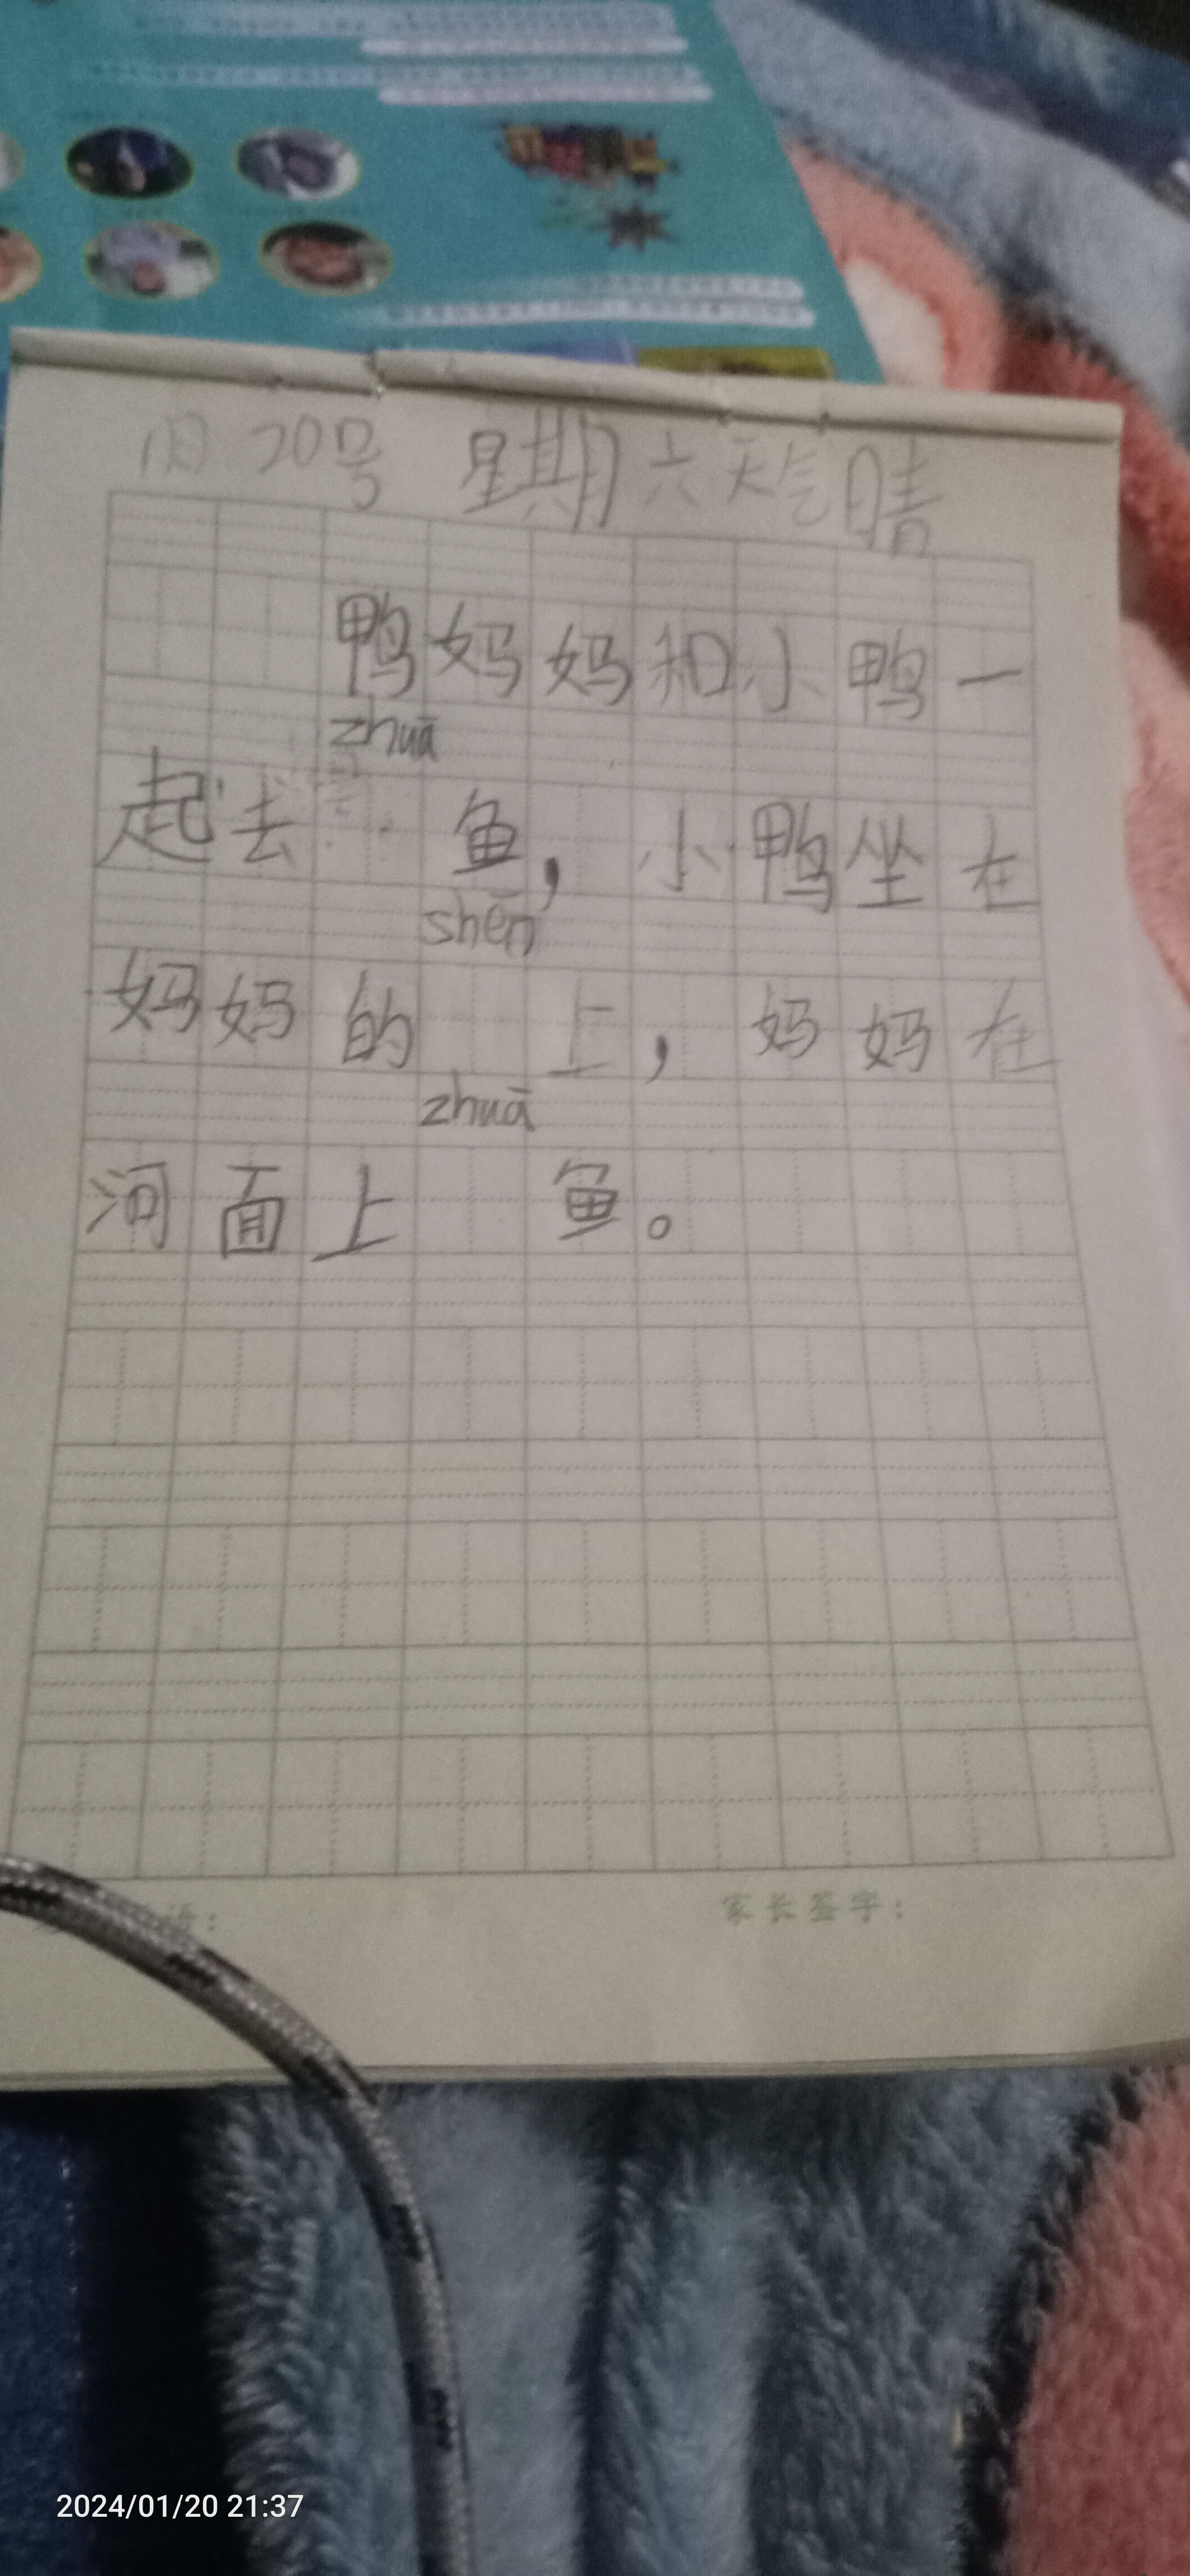 1月20号 星期六天气晴
鸭妈妈和小鸭一
zhuā
起去 鱼，小鸭坐在
shēn
妈妈的 上，妈妈在
zhuā
河面上 鱼。
家长签字：
2024/01/20 21:37